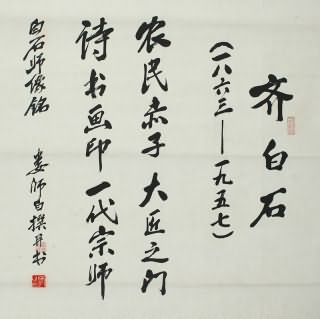 齐白石
(一八六三—一九五七)
农民赤子 大匠之门
诗书画印 一代宗师
白石师像铭
娄师白撰并书